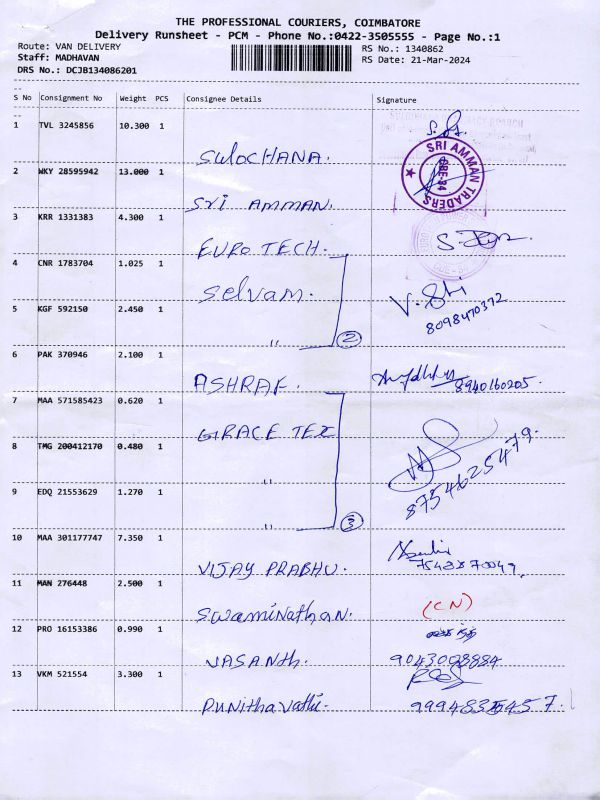 THE PROFESSIONAL COURIERS, COIMBATORE
Delivery Runsheet - PCM - Phone No.:0422-3505555 - Page No.:1
Route: VAN DELIVERY RS No.: 1340862
Staff: MADHAVAN RS Date: 21-Mar-2024
DRS No.: DCJB134086201
S No Consignment No Weight PCS Consignee Details Signature
1 TVL 3245856 10.300 1
SULOCHANA.
2 WKY 28595942 13.000 1
SRI AMMAN TRADERS
CBE-34
Sri AMMAN.
3 KRR 1331383 4.300 1
EURO TECH.
4 CNR 1783704 1.025 1
Selvam.
5 KGF 592150 2.450 1
8098470372
" 2
6 PAK 370946 2.100 1
ASHRAF. 8940160205.
7 MAA 571585423 0.620 1
GRACE TEX
8 TMG 200412170 0.480 1
8754625479.
9 EDQ 21553629 1.270 1
" 3
10 MAA 301177747 7.350 1
VIJAY PRABHU.
11 MAN 276448 2.500 1
Swaminathan. (CN)
12 PRO 16153386 0.990 1
VASANth. 9043008884
13 VKM 521554 3.300 1
Punithavathi.